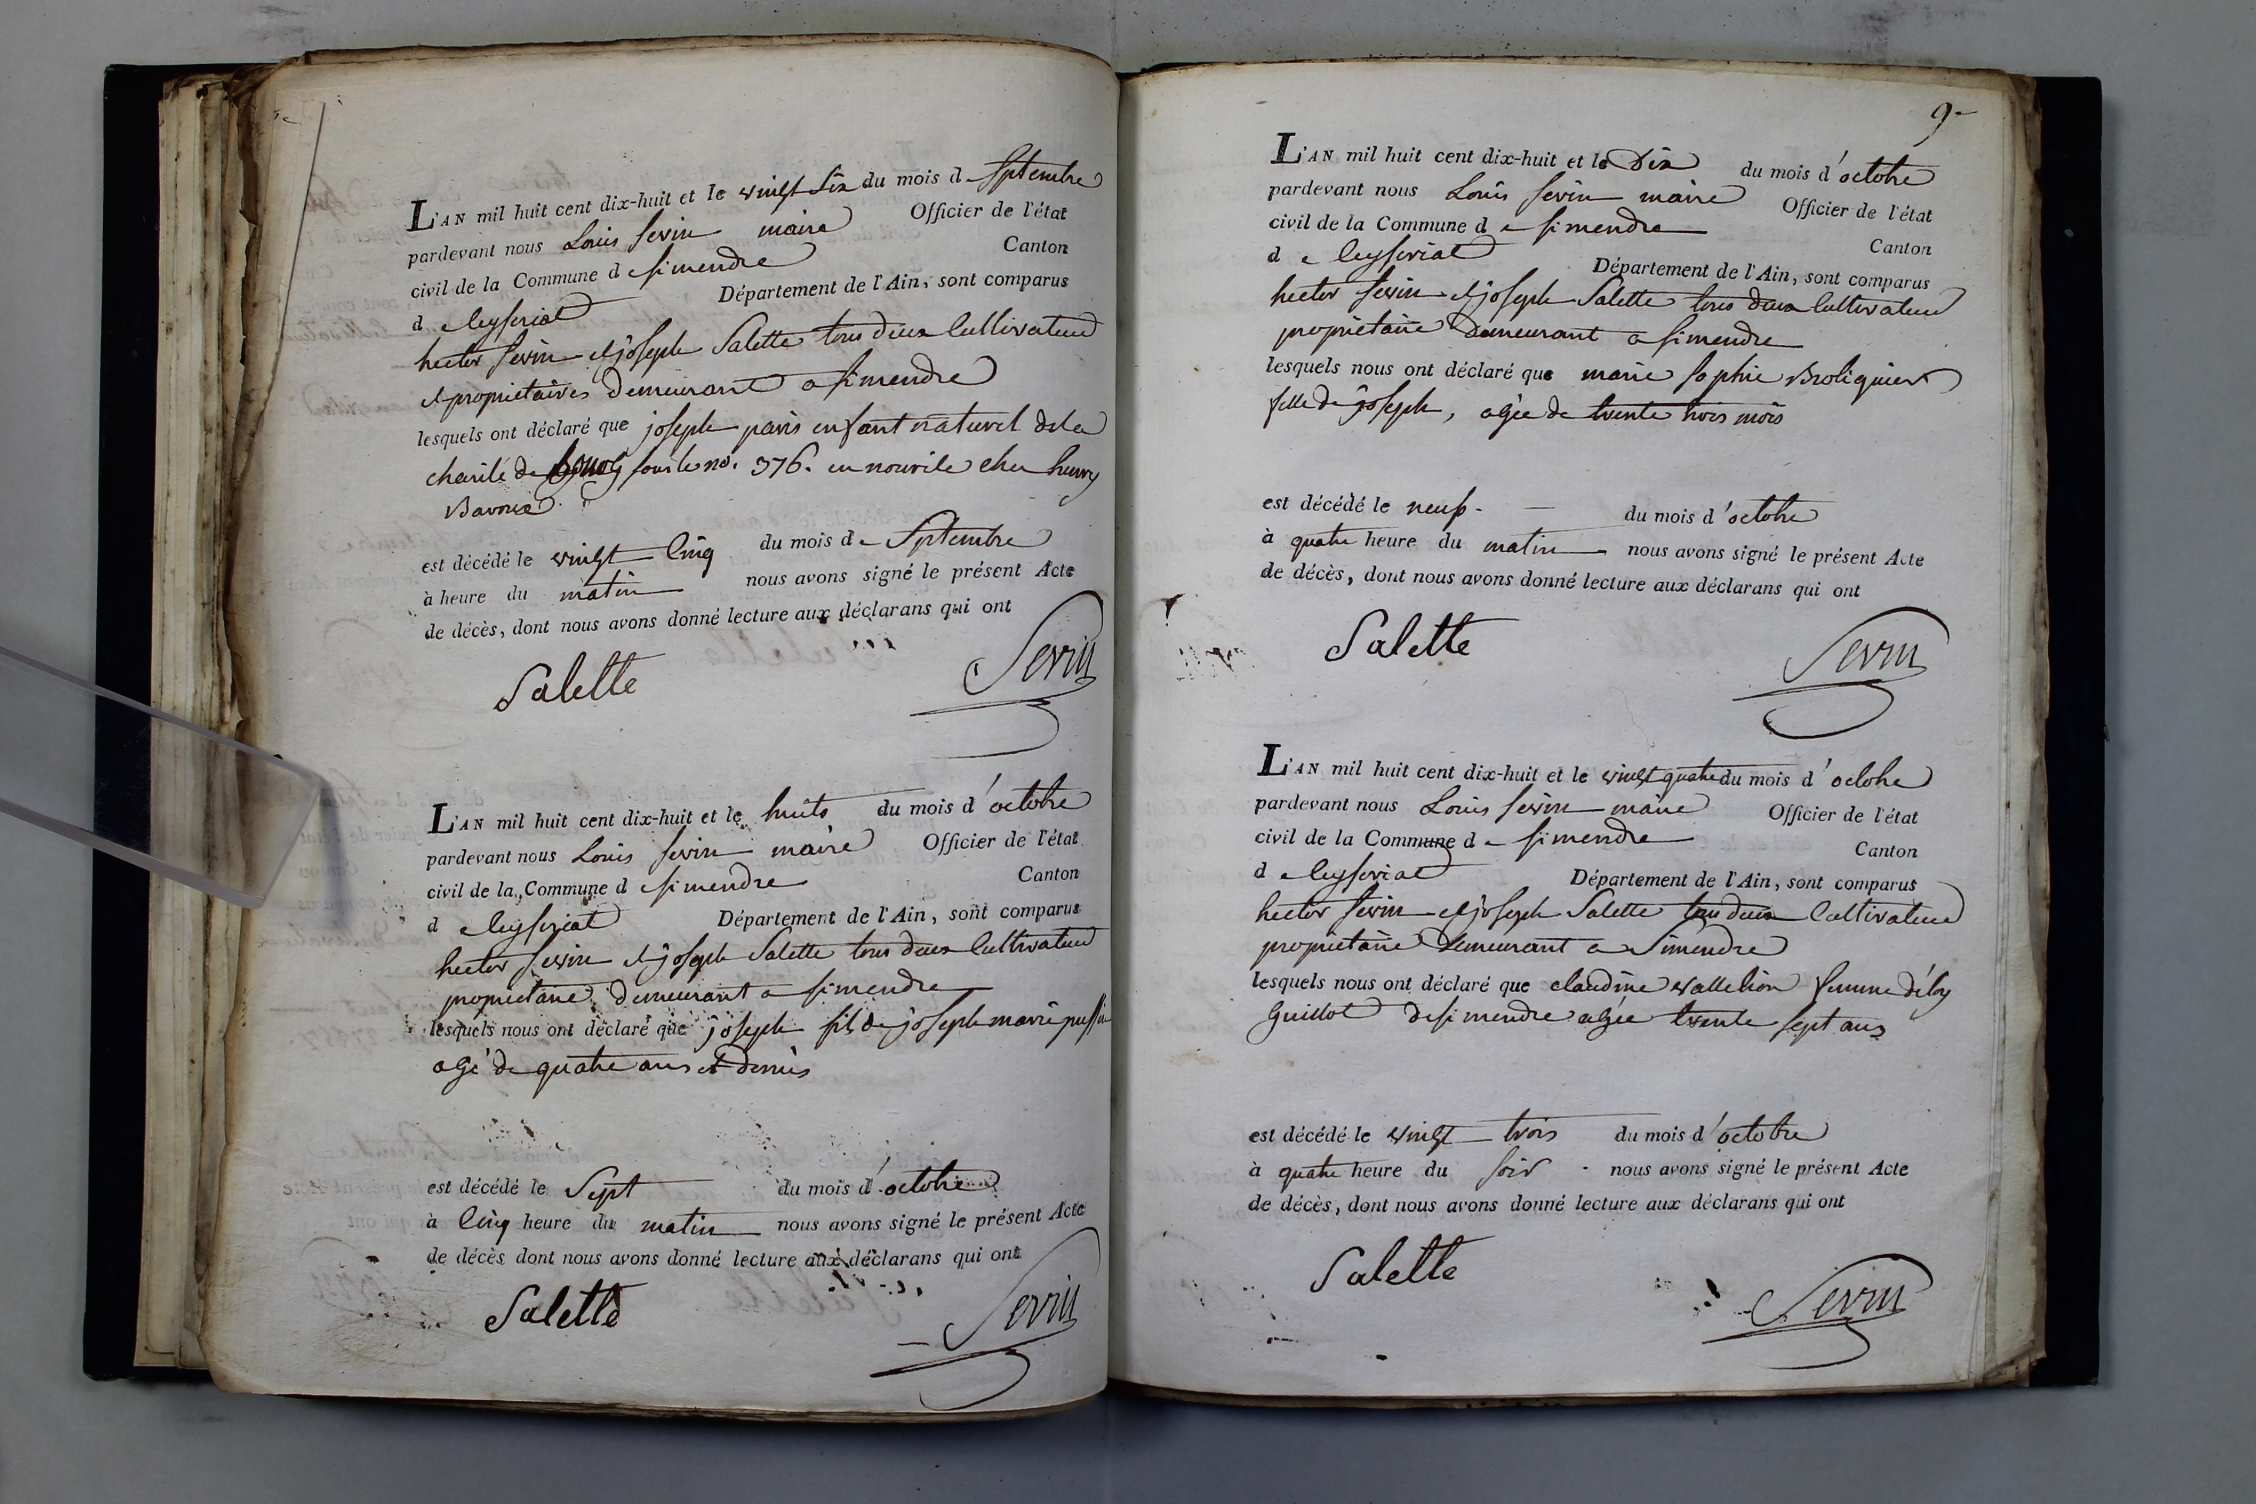 L'AN mil huit cent dix-huit et le vingt six du mois d Septembre
pardevant nous Louis Sevin maire Officier de l'état
civil de la Commune d e Simendre Canton
d e Ceyseriat Département de l'Ain, sont comparus
hector Sevin et joseph Salette tous deux Cultivateur
et propriétaires Demeurant a Simendre
lesquels ont déclaré que joseph paris enfant naturel de la
charité de bourg sous le no. 376. en nourile chez henry
Bavoux
est décédé le vingt Cinq du mois d e Septembre
à heure du matin nous avons signé le présent Acte
de décès, dont nous avons donné lecture aux déclarans qui ont
Salette Sevin
L'AN mil huit cent dix-huit et le huits du mois d'octobre
pardevant nous Louis Sevin maire Officier de l'état
civil de la Commune d e Simendre Canton
d e Ceyseriat Département de l'Ain, sont comparus
hector Sevin et joseph Salette tous deux Cultivateur
propriétaire demeurant a Simendre
lesquels nous ont déclaré que joseph fils de joseph marie
agé de quatre ans et demis
est décédé le Sept du mois d'octobre
à Cinq heure du matin nous avons signé le présent Acte
de décès dont nous avons donné lecture aux déclarans qui ont
Salette Sevin
9
L'AN mil huit cent dix-huit et le Dix du mois d'octobre
pardevant nous Louis Sevin maire Officier de l'état
civil de la Commune d e Simendre Canton
d e Ceyseriat Département de l'Ain, sont comparus
hector Sevin et joseph Salette tous deux Cultivateur
propriétaire Demeurant a Simendre
lesquels nous ont déclaré que marie Sophie Broliquier
fille de joseph, agée de trente trois mois
est décédé le neuf du mois d'octobre
à quatre heure du matin nous avons signé le présent Acte
de décès, dont nous avons donné lecture aux déclarans qui ont
Salette Sevin
L'AN mil huit cent dix-huit et le vingt quatre du mois d'octobre
pardevant nous Louis Sevin maire Officier de l'état
civil de la Commune d e Simendre Canton
d e Ceyseriat Département de l'Ain, sont comparus
hector Sevin et joseph Salette tous deux Cultivateur
propriétaire Demeurant a Simendre
lesquels nous ont déclaré que claudine vallelion femme d'éloy
Guillot de Simendre agée trente sept ans
est décédé le vingt trois du mois d'octobre
à quatre heure du soir nous avons signé le présent Acte
de décès, dont nous avons donné lecture aux déclarans qui ont
Salette Sevin